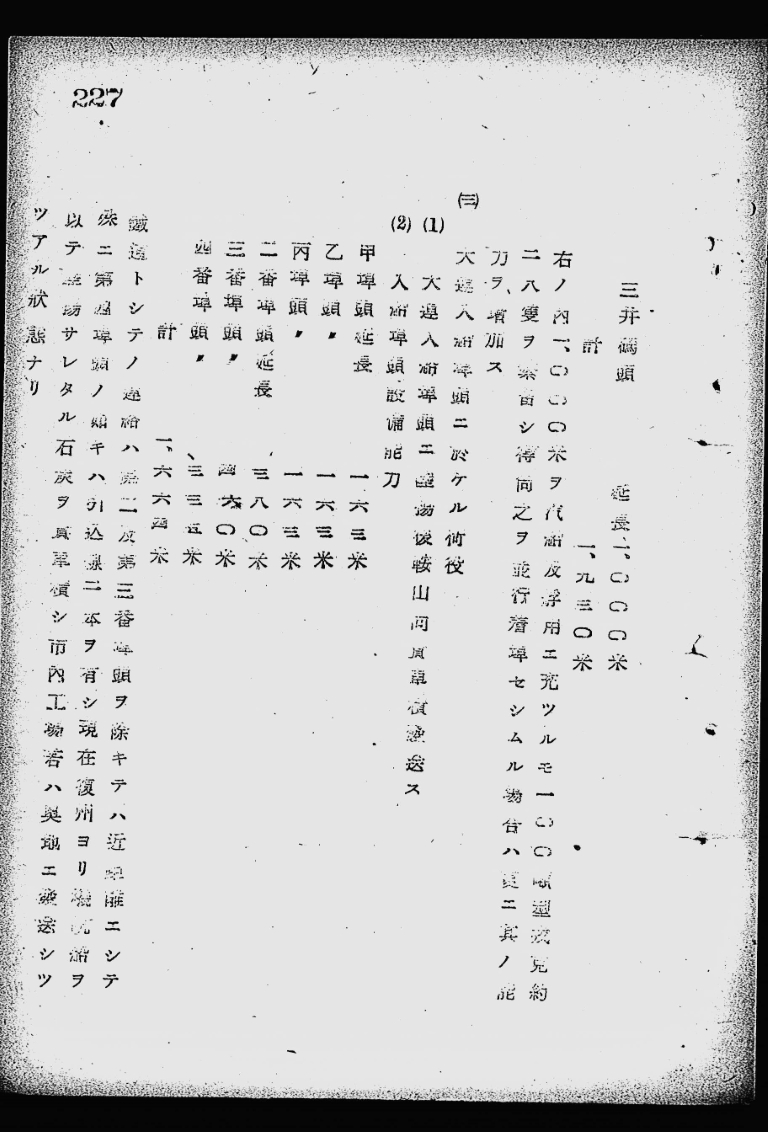 227
三井碼頭　延長一、〇〇〇米
計　一、九三〇米
右ノ內一、〇〇〇米ヲ汽船及浮用ニ充ツルモ一〇〇噸型戎克約
二八隻ヲ シ得同之ヲ並行着埠セシムル場合ハ更ニ其ノ能
力ヲ、增加ス
㈢ 大連入船埠頭ニ於ケル荷役
(1) 大連入船埠頭ニ陸揚後鞍山向貨車積發送ス
(2) 入船埠頭設備能力
甲埠頭延長　一六三米
乙埠頭〃　一六三米
丙埠頭〃　一六三米
二番埠頭延長　三八〇米
三番埠頭〃　四六〇米
四番埠頭〃　三三五米
計　一、六六四米
鐵道トシテノ連絡ハ第二及第三番埠頭ヲ除キテハ近距離ニシテ
殊ニ第四埠頭ノ如キハ引込線二本ヲ有シ現在復州ヨリ 船ヲ
以テ陸揚サレタル石炭ヲ貨車積シ市內工場若ハ奥地ニ發送シツ
ツアル狀態ナリ